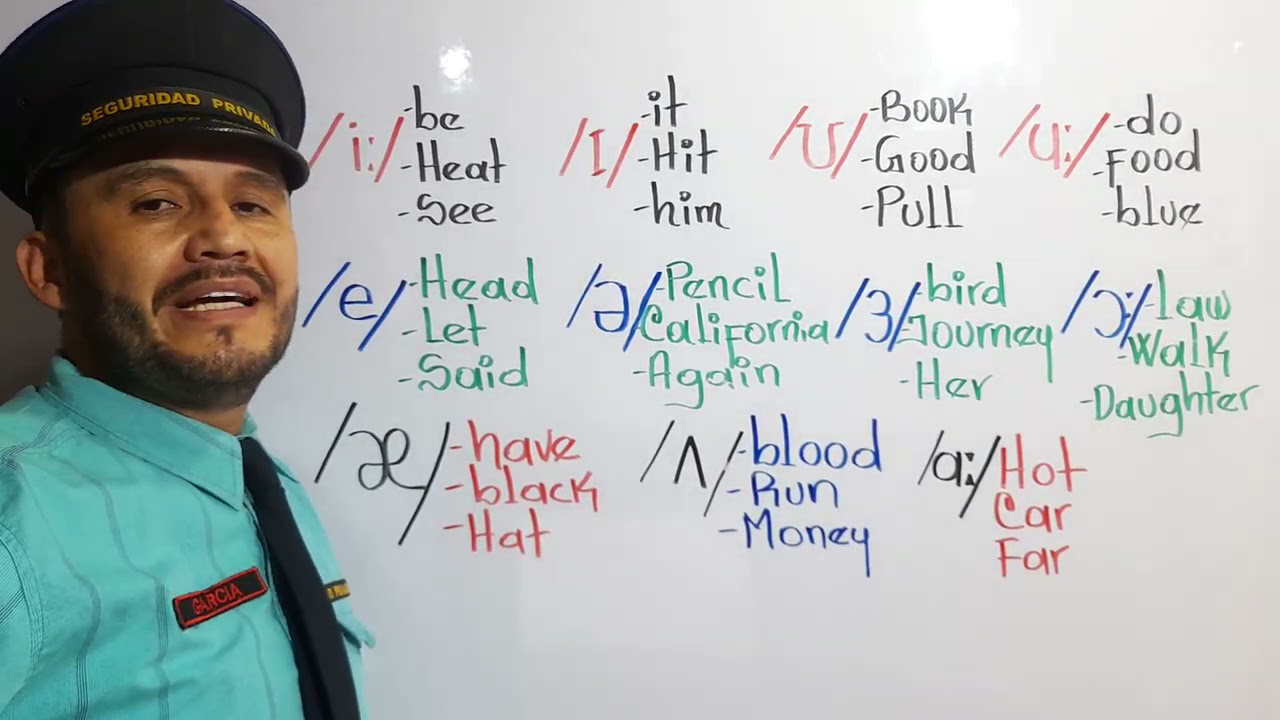 SEGURIDAD PRIVADA
/i:/ -be
-Heat
-See
/I/ -it
-Hit
-him
/ʊ/ -BOOK
-Good
-Pull
/u:/ -do
-Food
-blue
/e/ -Head
-Let
-Said
/ə/ -Pencil
California
-Again
/ɜ/ -bird
-Journey
-Her
/ɔ:/ -law
-Walk
-Daughter
/æ/ -have
-black
-Hat
/ʌ/ -blood
-Run
-Money
/ɑ:/ Hot
Car
Far
GARCIA